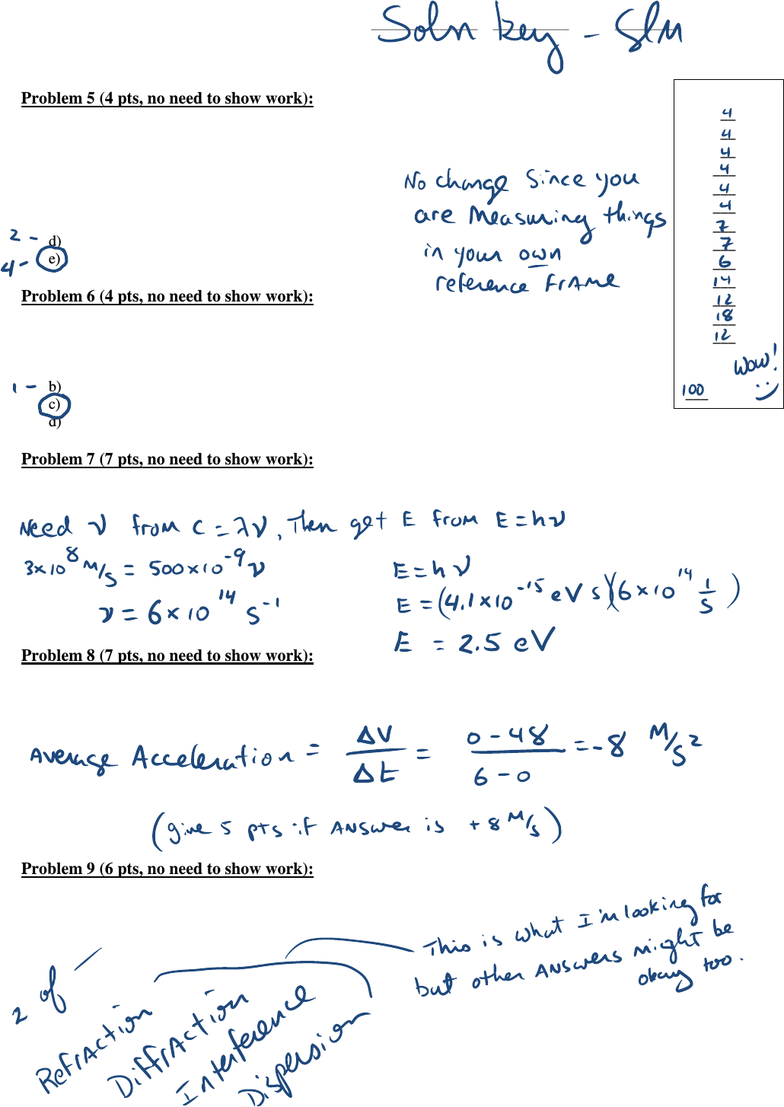 Soln key - SLM
Problem 5 (4 pts, no need to show work):
4
4
4
4
4
4
7
7
6
14
12
18
12
Wow!
100
No change since you
are measuring things
in your own
reference frame
2 - d)
4 - e)
Problem 6 (4 pts, no need to show work):
1 - b)
c)
d)
Problem 7 (7 pts, no need to show work):
Need ν from c = λν, Then get E from E = hν
3×10^8 M/s = 500×10^-9 ν
ν = 6×10^14 s^-1
E = hν
E = (4.1×10^-15 eV s)(6×10^14 1/s)
E = 2.5 eV
Problem 8 (7 pts, no need to show work):
Average Acceleration = ΔV/Δt = (0-48)/(6-0) = -8 M/s²
(give 5 pts if Answer is +8 M/s)
Problem 9 (6 pts, no need to show work):
2 of
Refraction
Diffraction
Interference
Dispersion
This is what I'm looking for
but other Answers might be
okay too.